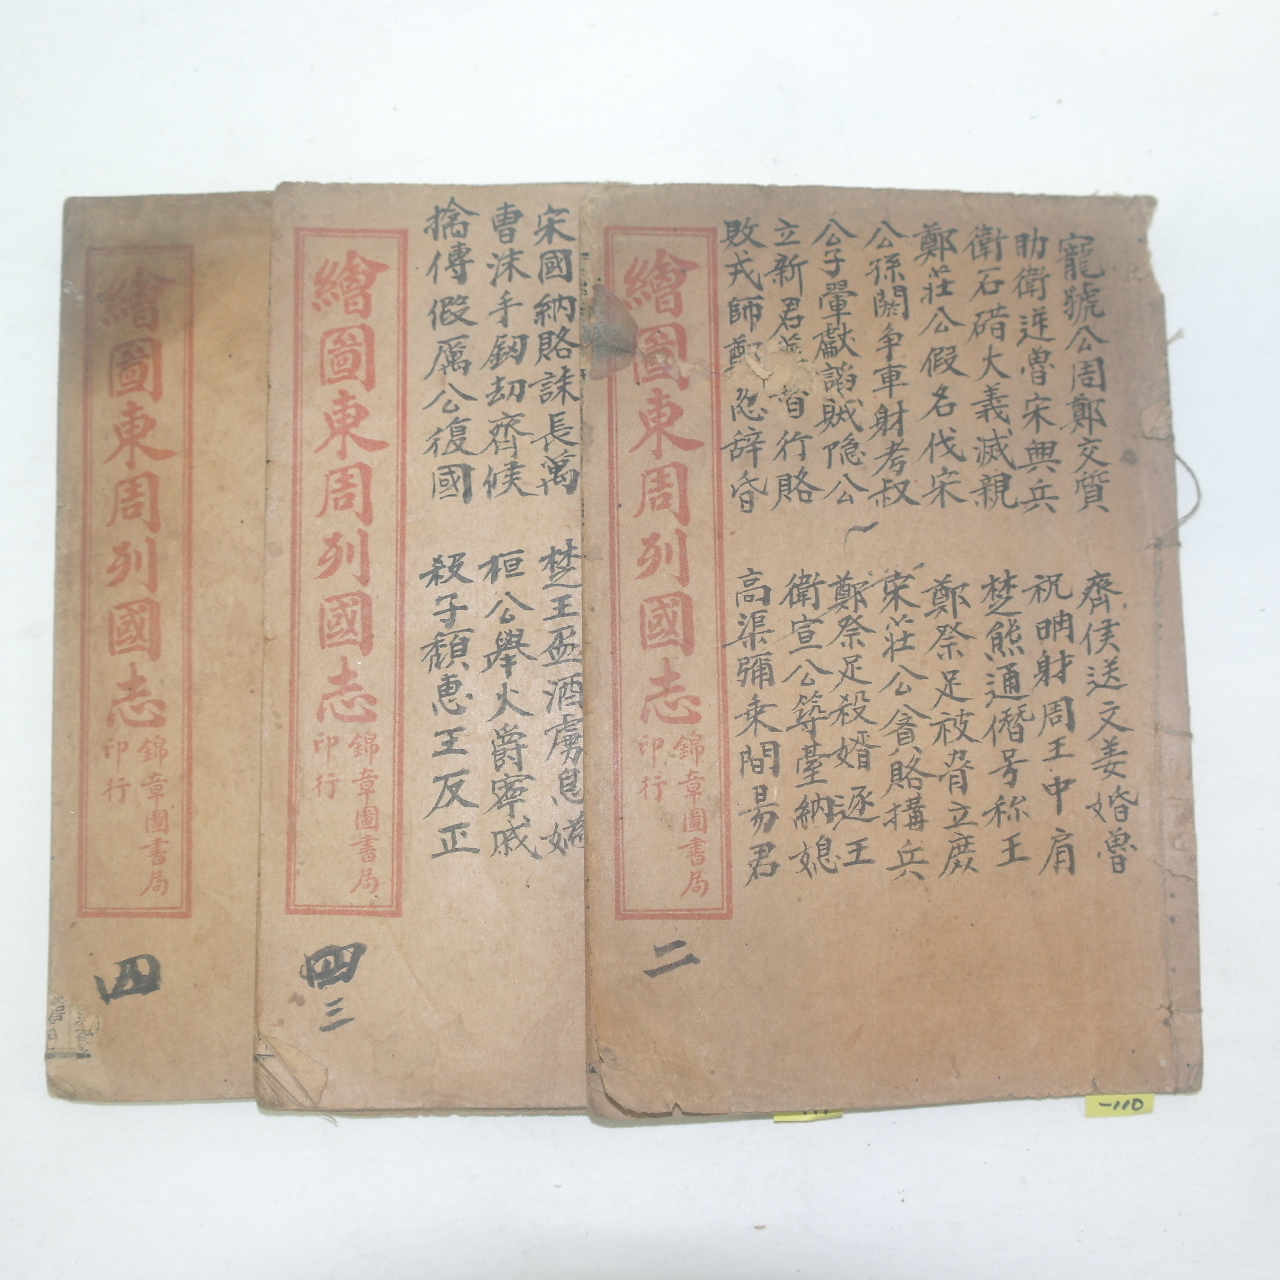 寵虢公周鄭交質
助衛逆魯宋興兵
衛石碏大義滅親
鄭莊公假名伐宋
公孫閼争車射考叔
公子翬獻諂賊隐公
立新君 督行賂
敗戎師鄭忽辞昏
齊侯送文姜婚魯
祝聃射周王中肩
楚熊通僭号称王
鄭祭足被脅立庶
宋莊公貪賂搆兵
鄭祭足殺婿逐王
衛宣公築臺納媳
高渠彌乗間易君
繪圖東周列國志
錦章圖書局
印行
二
宋國納賂誅長萬
曹沫手劒劫齊侯
擒傅假厲公復國
楚王盃酒虜息媯
桓公舉火爵寧戚
殺子頽惠王反正
繪圖東周列國志
錦章圖書局
印行
四
三
繪圖東周列國志
錦章圖書局
印行
四
-110